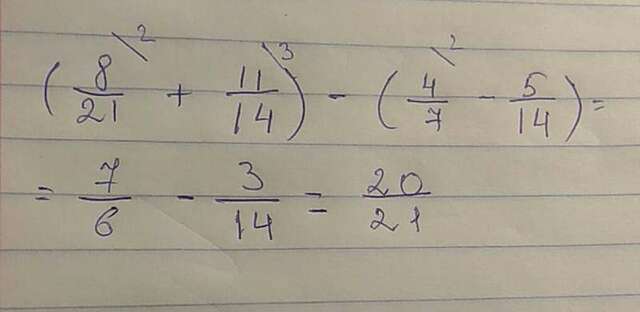 (8/21 \2 + 11/14 \3) - (4/7 \2 - 5/14) =
= 7/6 - 3/14 = 20/21